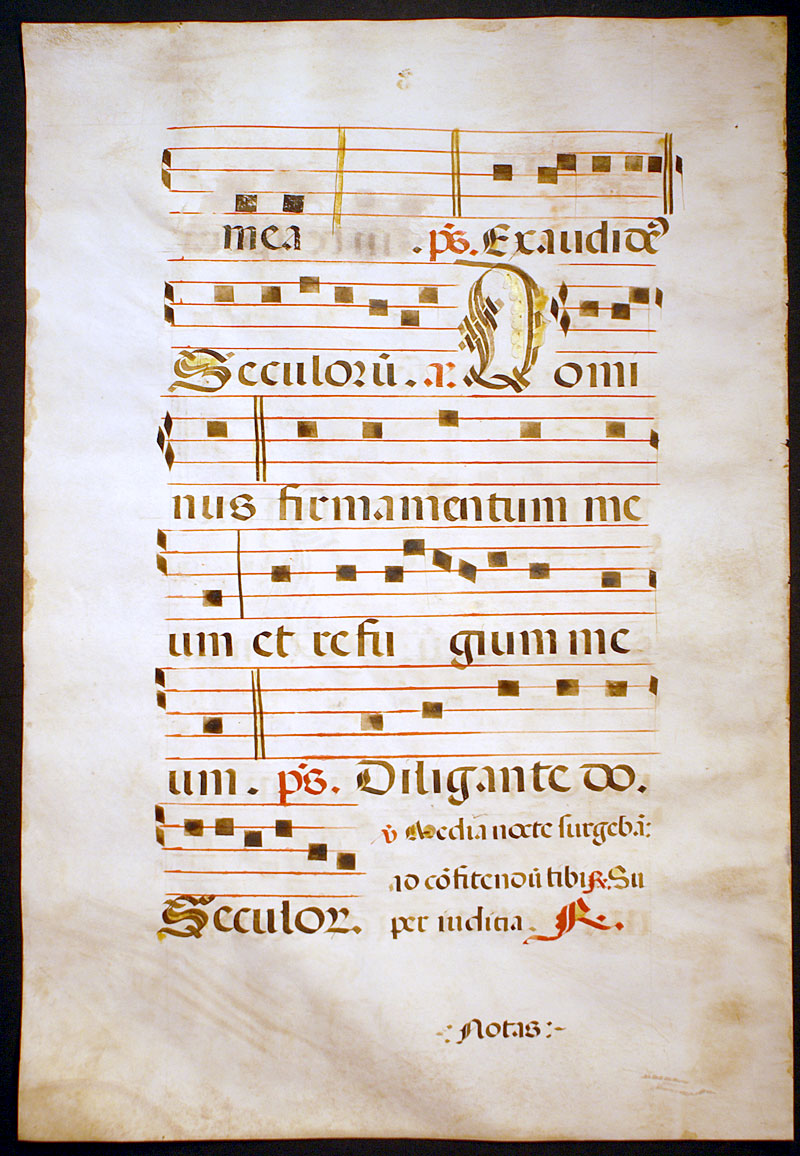 mea . ps. Exaudi dē
Seculorū. añ. Domi
nus firmamentum me
um et refu gium me
um. ps. Diligam te do.
Seculor.
℣ Media nocte surgebā:
ad cōfitendū tibi ℟. Su
per iuditia. R.
·: Notas :~